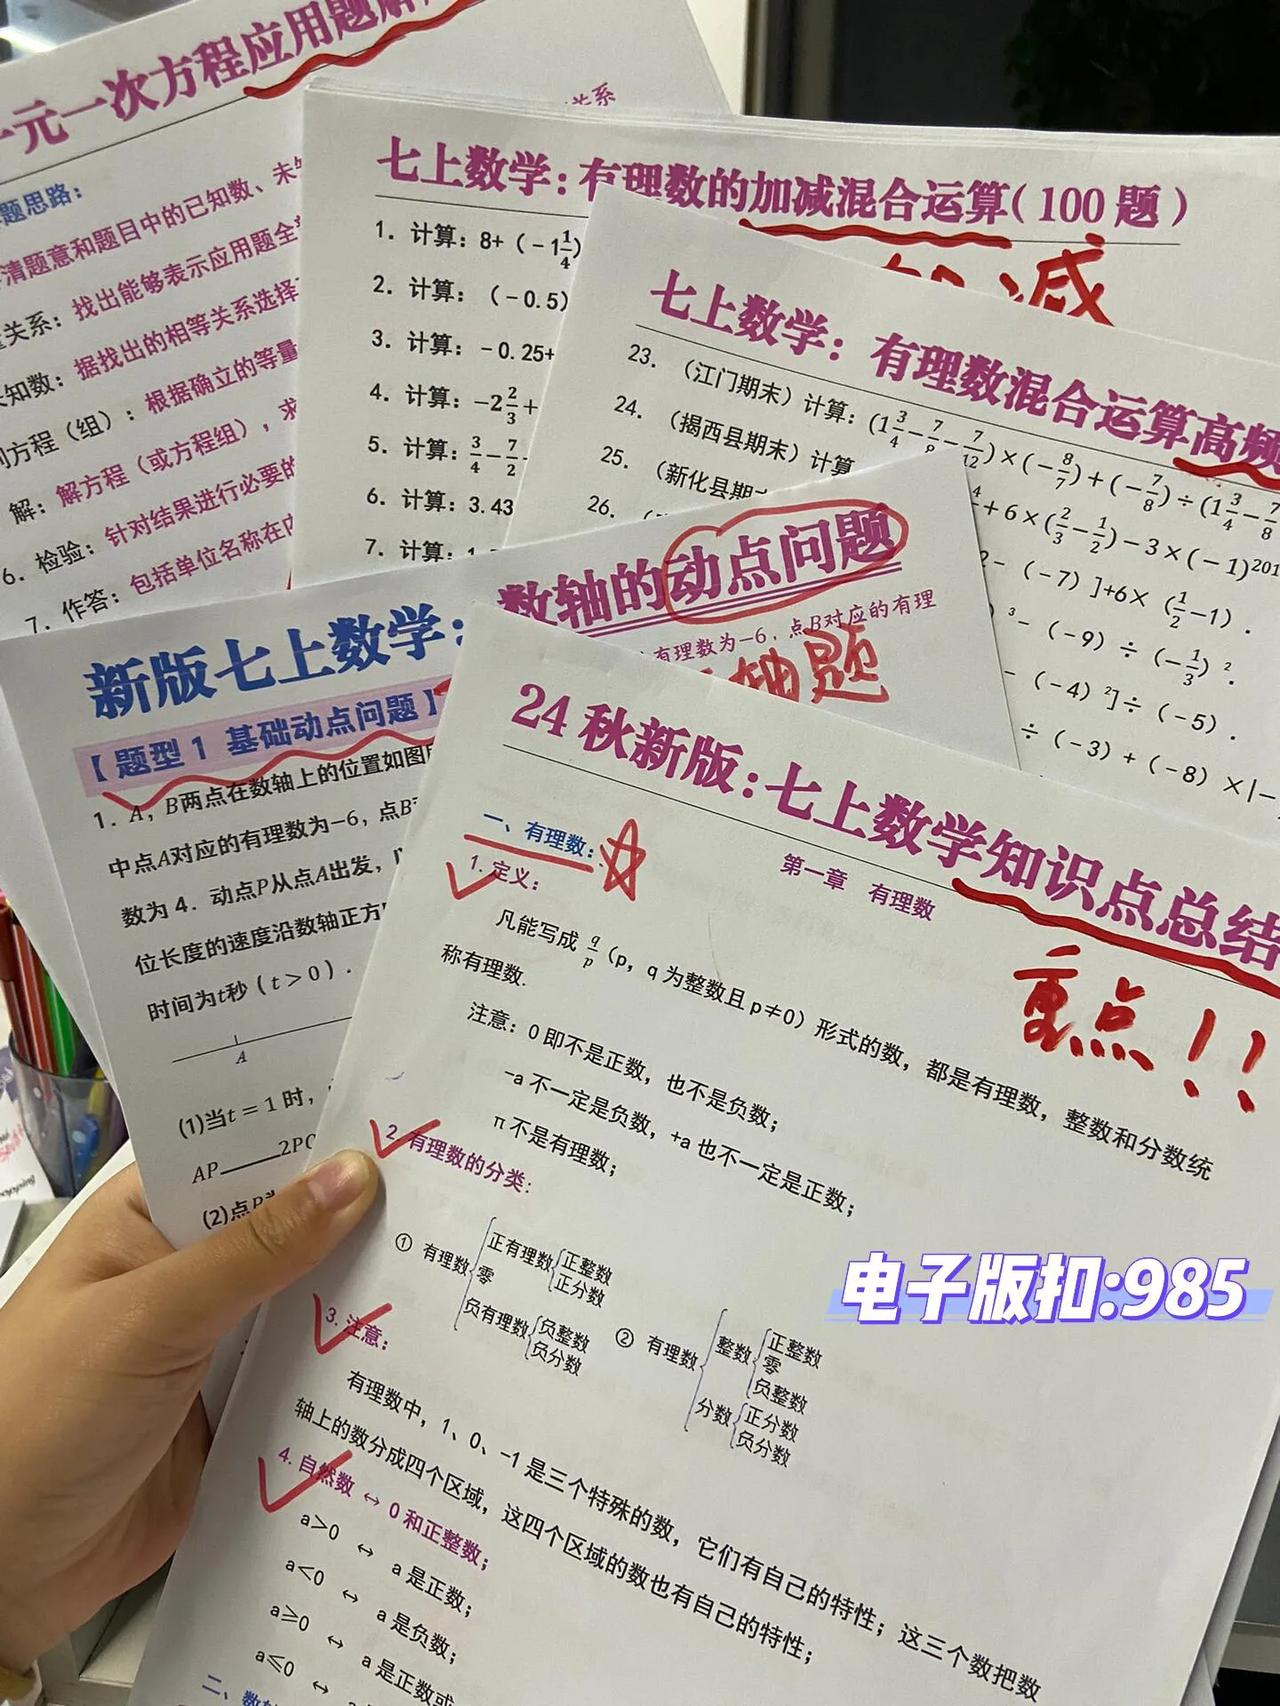 一元一次方程应用题解
题思路：
清题意和题目中的已知数、未知
关系：找出能够表示应用题全部
未知数：据找出的相等关系选择
列方程（组）：根据确立的等量
解：解方程（或方程组），求
6．检验：针对结果进行必要的
7．作答：包括单位名称在内
关系
七上数学：有理数的加减混合运算（100 题）
加减
1．计算：8+（-1 1/4）
2．计算：（-0.5）
3．计算：-0.25+
4．计算：-2 2/3 +
5．计算：3/4 - 7/2 -
6．计算：3.43
7．计算：1.
七上数学：有理数混合运算高频
23．（江门期末）计算：(1 3/4 - 7/8 - 7/12)×(-8/7)+(-7/8)÷(1 3/4 - 7/8
24．（揭西县期末）计算
+6×(2/3 - 1/2)-3×(-1)^201
25．（新化县期
-（-7）]+6×（1/2 -1）．
26．
³-（-9）÷（-1/3）²．
-（-4）²]÷（-5）．
÷（-3）+（-8）×|-
数轴的动点问题
有理数为-6，点B对应的有理
轴题
新版七上数学：
【题型 1 基础动点问题】
1．A，B两点在数轴上的位置如图所
中点A对应的有理数为-6，点B
数为 4．动点P从点A出发，以
位长度的速度沿数轴正方
时间为t秒（t＞0）．
A
(1)当t＝1 时，
AP____2PQ
(2)点P
24 秋新版：七上数学知识点总结
第一章 有理数
重点！！
一、有理数：
1. 定义：
凡能写成 q/p（p，q 为整数且 p≠0）形式的数，都是有理数，整数和分数统
称有理数.
注意：0 即不是正数，也不是负数；
-a 不一定是负数，+a 也不一定是正数；
π 不是有理数；
2. 有理数的分类：
① 有理数 正有理数 正整数
正分数
零
负有理数 负整数
负分数
② 有理数 整数 正整数
零
负整数
分数 正分数
负分数
3. 注意：
有理数中，1、0、-1 是三个特殊的数，它们有自己的特性；这三个数把数
轴上的数分成四个区域，这四个区域的数也有自己的特性；
4. 自然数 ↔ 0 和正整数；
a>0 ↔ a 是正数；
a<0 ↔ a 是负数；
a≥0 ↔ a 是正数或
a≤0 ↔ a
二、数轴
电子版扣:985